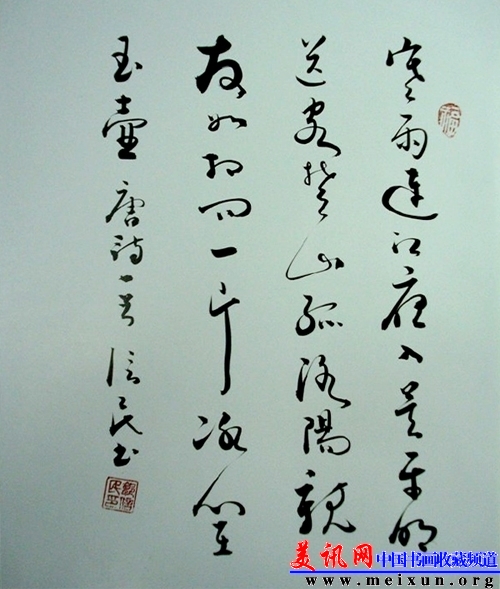 寒雨連江夜入吴平明
送客楚山孤洛陽親
友如相问一片冰心在
玉壺 唐詩一首 信民书
美讯网 中国书画收藏频道
www.meixun.org